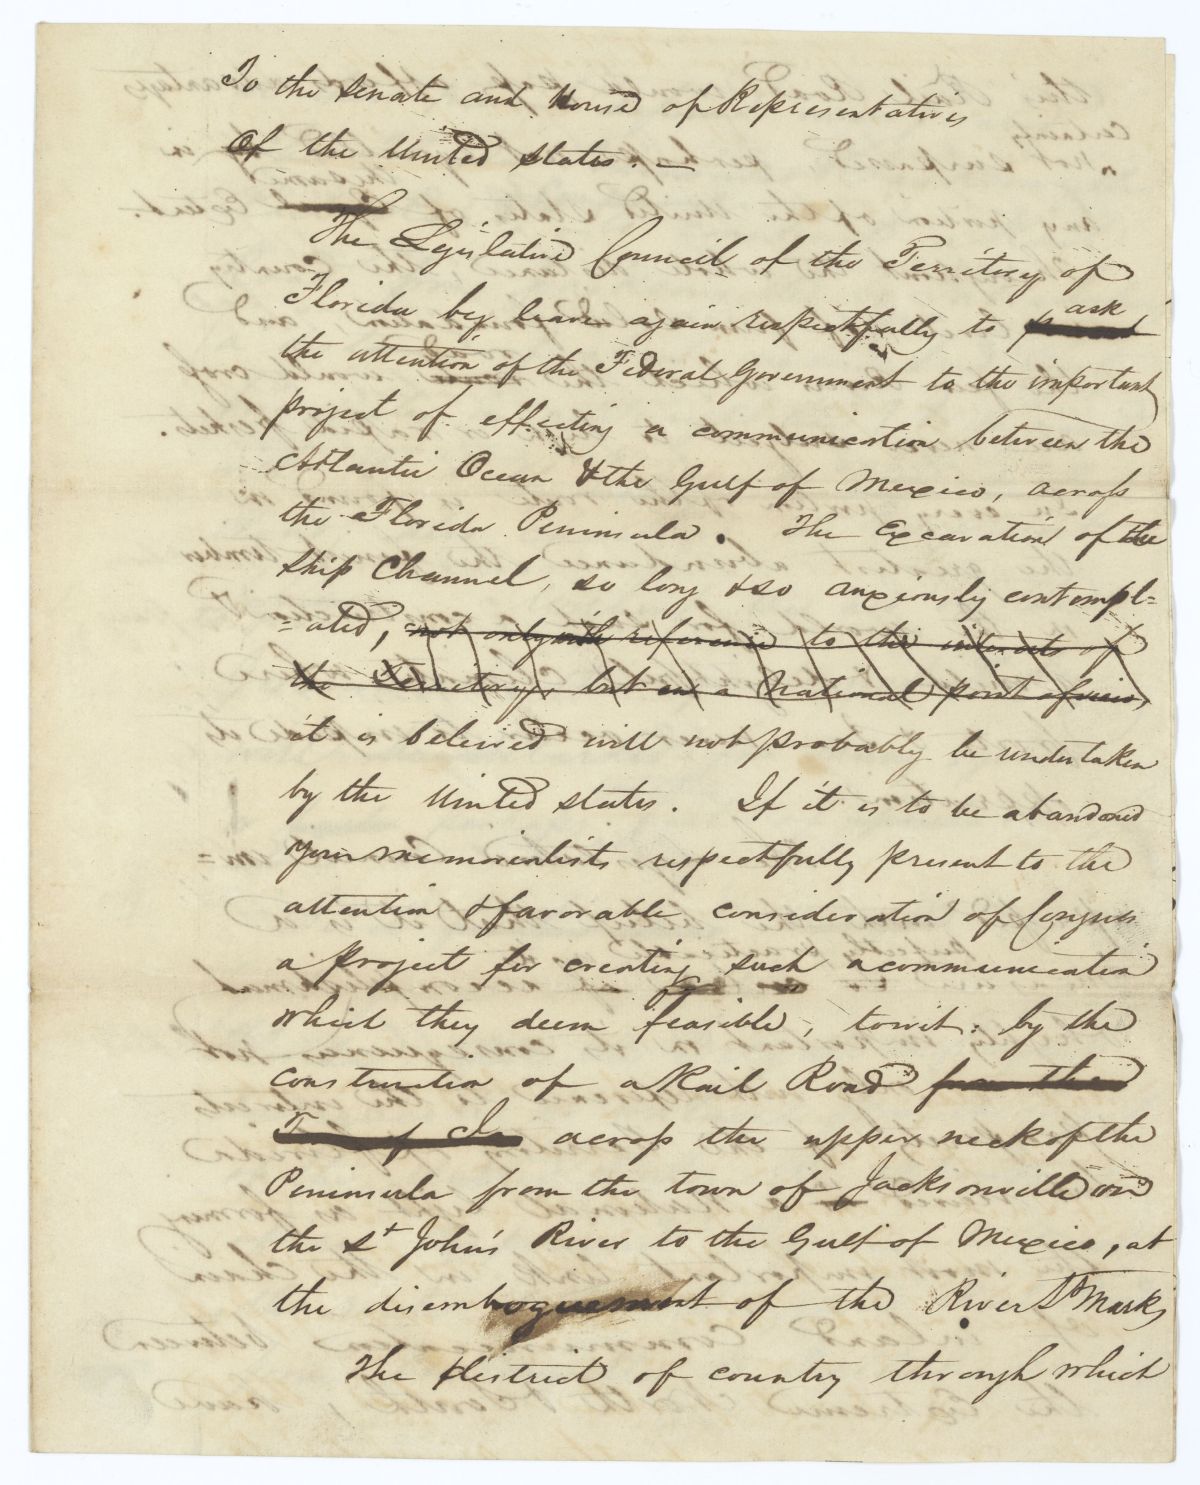 To the Senate and House of Representatives
Of the United States. —
The Legislative Council of the Territory of
Florida beg leave again respectfully to ask
the attention of the Federal Government to the important
project of effecting a communication between the
Atlantic Ocean & the Gulf of Mexico, across
the Florida Peninsula. The Excavation of the
Ship Channel, so long & so anxiously contempl=
=ated, not only with reference to the interests of
the Territory, but in a National point of view,
it is beleived will not probably be undertaken
by the United States. If it is to be abandoned
your memorialists respectfully present to the
attention & favorable consideration of Congress
a project for creating such a communication
which they deem feasible, towit: by the
construction of a Rail Road from the
across the upper neck of the
Peninsula from the town of Jacksonville on
the St John's River to the Gulf of Mexico, at
the disemboguement of the River St Marks
The District of country through which